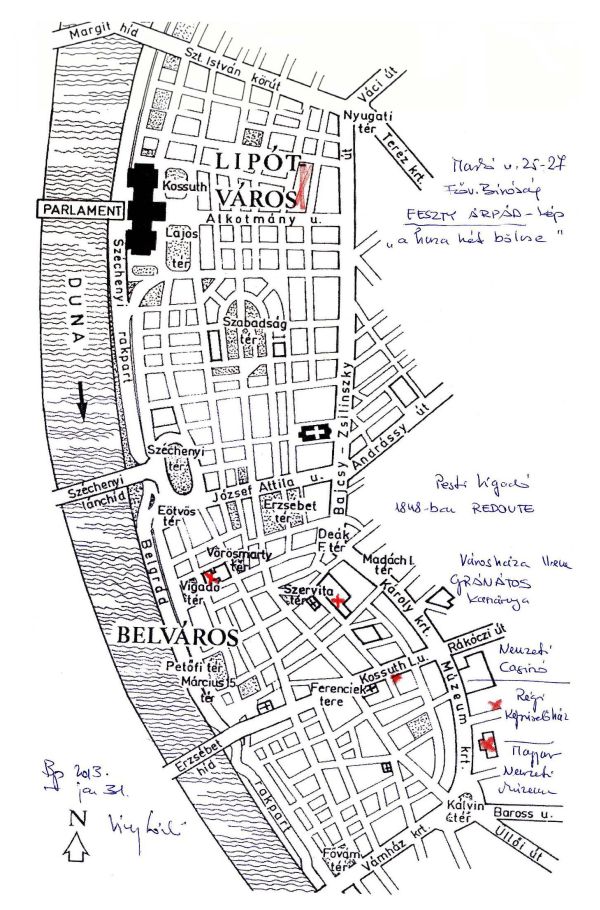 Margit híd
Szt. István körút
Váci út
Nyugati
tér
Teréz krt.
LIPÓT
VÁROS
út
Markó u. 25-27
Főv. Bíróság
FESZTY ÁRPÁD-kép
PARLAMENT
Kossuth
Lajos
tér
Alkotmány u.
Széchenyi
rakpart
DUNA
Szabadság
tér
Bajcsy-Zsilinszky
Andrássy út
Széchenyi
tér
Széchenyi
lánchíd
József Attila u.
Eötvös
tér
Erzsébet
tér
Pesti Vigadó
1848-ban REDOUTE
Deák
F. tér
Madách I.
tér
Vörösmarty
tér
Vigadó
tér
Szervita
tér
Károly krt.
Városháza
GRÁNÁTOS
Kaszárnya
Belgrád
rakpart
BELVÁROS
Rákóczi út
Nemzeti
Casinó
Petőfi tér
Március 15.
tér
Kossuth L.u.
Ferenciek
tere
Múzeum
krt.
Régi
Képviselőház
Magyar
Nemzeti
Múzeum
Erzsébet
híd
Bp 2013.
jan 31.
N
Kálvin
tér
Baross u.
Üllői út
Vámház krt.
Fővám
tér